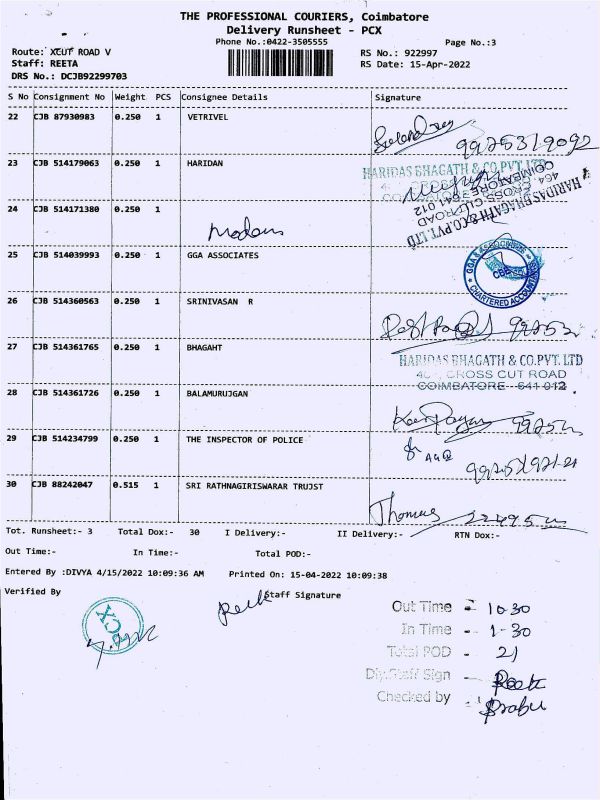 THE PROFESSIONAL COURIERS, Coimbatore
Delivery Runsheet - PCX
Phone No.:0422-3505555
Page No.:3
Route: XCUT ROAD V
RS No.: 922997
Staff: REETA
RS Date: 15-Apr-2022
DRS No.: DCJB92299703
S No Consignment No Weight PCS Consignee Details Signature
22 CJB 87930983 0.250 1 VETRIVEL
9925319092
23 CJB 514179063 0.250 1 HARIDAN
HARIDAS BHAGATH & CO.PVT.LTD
HARIDAS BHAGATH & CO.PVT.LTD
464, CROSS CUT ROAD
COIMBATORE - 641 012
24 CJB 514171380 0.250 1
25 CJB 514039993 0.250 1 GGA ASSOCIATES
GGA & ASSOCIATES
CBE
CHARTERED ACCOUNTANTS
26 CJB 514360563 0.250 1 SRINIVASAN R
27 CJB 514361765 0.250 1 BHAGAHT
HARIDAS BHAGATH & CO.PVT. LTD
CROSS CUT ROAD
COIMBATORE 641 012.
28 CJB 514361726 0.250 1 BALAMURUJGAN
29 CJB 514234799 0.250 1 THE INSPECTOR OF POLICE
30 CJB 88242047 0.515 1 SRI RATHNAGIRISWARAR TRUJST
Thomas
Tot. Runsheet:- 3 Total Dox:- 30 I Delivery:- II Delivery:- RTN Dox:-
Out Time:- In Time:- Total POD:-
Entered By :DIVYA 4/15/2022 10:09:36 AM Printed On: 15-04-2022 10:09:38
Verified By
Reeta Staff Signature
XCUT
Out Time - 10-30
In Time - 1-30
Total POD - 21
Dly.Staff Sign - Reeta
Checked by - Prabu